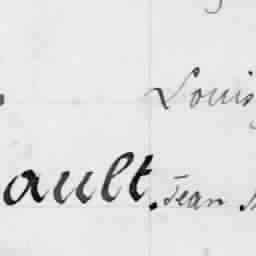 Louis
ault. Jean